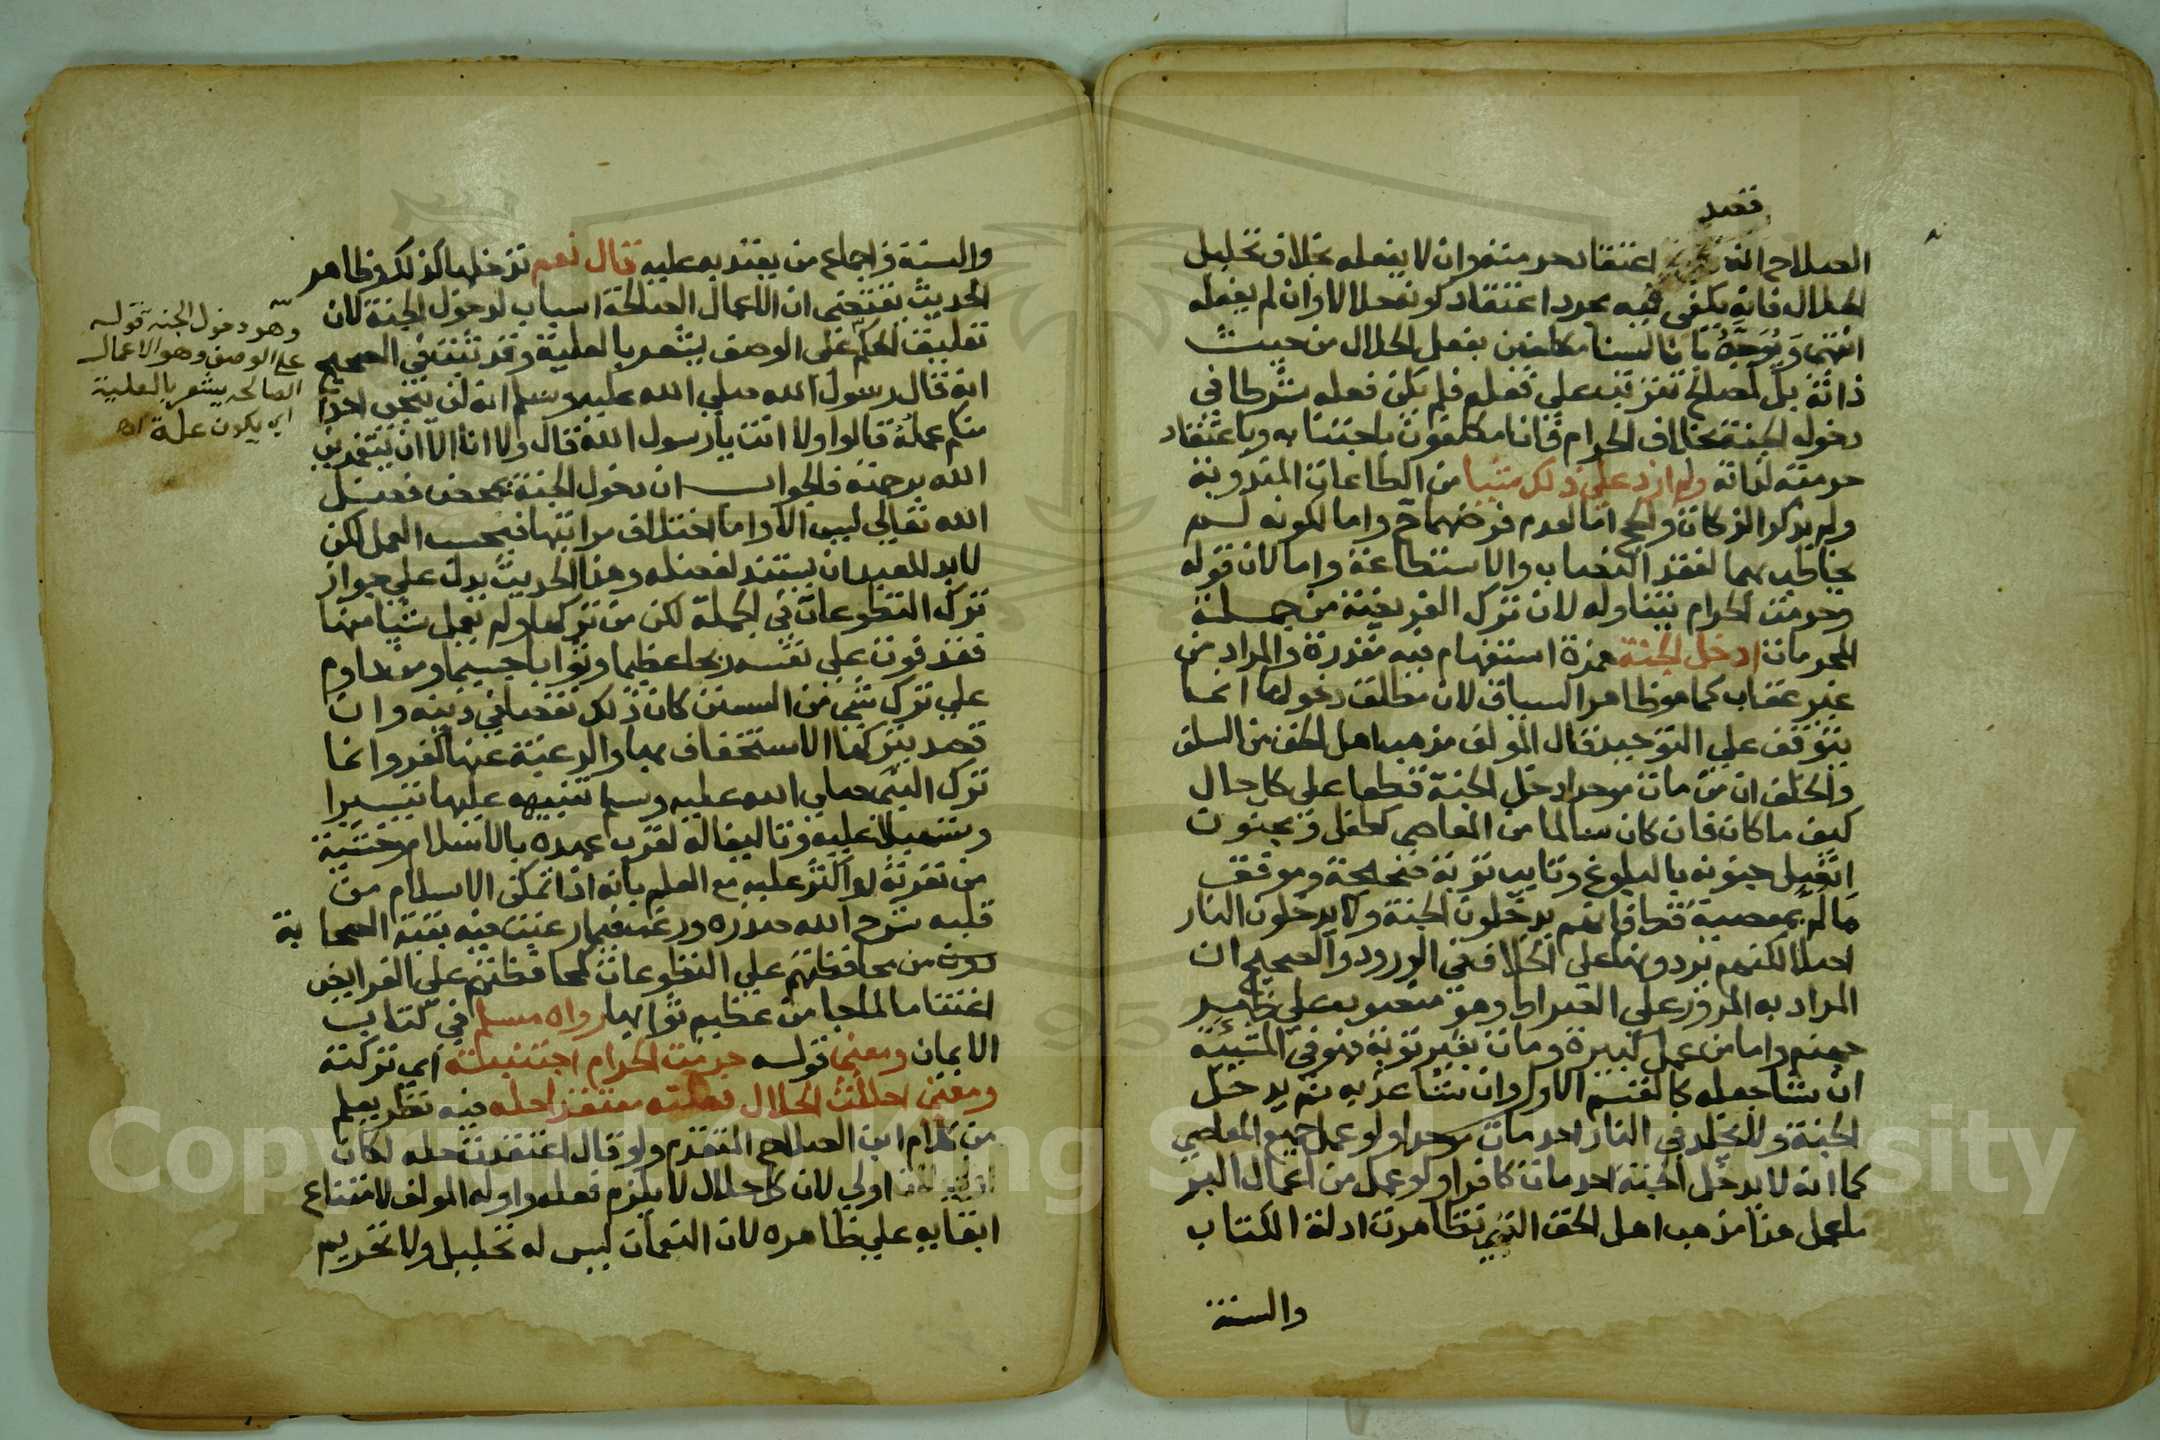 قصد
الصلاح انه اعتقاد حرمته وان لا يفعله بخلاف تحليل
الحلال فانه يكفي فيه مجرد اعتقاد كونه حلالا وان لم يفعله
انتهى ويوجه بانا لسنا مكلفين بفعل الحلال من حيث
ذاته بل لمصالح تترتب علي فعله فلم يكن فعله شرطا في
دخوله الجنة بخلاف الحرام فانا مكلفون باجتنابه وباعتقاد
حرمته لذاته ولم ازد علي ذلك شيا من الطاعات المندوبة
ولم يذكر الزكاة والحج اما لعدم فرضهما ح واما لكونه لم
يخاطب بهما لفقد النصاب والاستطاعة واما لان قوله
وحرمت الحرام يتناوله لان ترك الفريضة من جملة
المحرمات ادخل الجنة همزة استفهام فيه مقدرة والمراد من
غير عقاب كما هو ظاهر السياق لان مطلق دخولها انما
يتوقف علي التوحيد قال المولف مذهب اهل الحق من السلف
والخلف ان من مات موحدا دخل الجنة قطعا علي كل حال
كيف ما كان فان كان سالما من المعاصي كطفل ومجنون
اتصل جنونه بالبلوغ وتايب توبة صحيحة وموفق
ما لم بمعصية قط فانهم يدخلون الجنة ولا يدخلون النار
اصلا لكنهم يردونها علي الخلاف في الورود والصحيح ان
المراد به المرور علي الصراط وهو منصوب علي ظهر
جهنم واما من عمل كبيرة ومات بغير توبة فهو في المشيئة
ان شا جعله كالقسم الاول وان شا عذبه ثم يدخل
الجنة ولا يخلد في النار احد مات موحدا ولو عمل جميع المعاصي
كما انه لا يدخل الجنة احد مات كافرا ولو عمل من اعمال البر
ما عمل هذا مذهب اهل الحق الذي تظاهرت ادلة الكتاب
والسنة
والسنة واجماع من يعتد به عليه قال نعم تدخلها كذلك وظاهر
الحديث يقتضي ان الاعمال الصالحة اسباب لدخول الجنة لان
تعليق الحكم على الوصف يشعر بالعلية وقد ثبت في الصحيح
انه قال رسول الله صلي الله عليه وسلم انه لن ينجي احدا
منكم عمله قالوا ولا انت يا رسول الله قال ولا انا الا ان يتغمدني
الله برحمته فالجواب ان دخول الجنة بمحض فضل
الله تعالي ليس الا واما اختلاف مراتبها فبحسب العمل لكن
لا بد للعبد ان يستند لفضله وهذا الحديث يدل علي جواز
ترك التطوعات في الجملة لكن من تركها ولم يعمل شيا منها
فقد فوت علي نفسه ربحا عظيما وثوابا جسيما ومن داوم
علي ترك شي من السنن كان ذلك نقصا في دينه وان
قصد بتركها الاستخفاف بها والرغبة عنها كفر وانما
ترك النبي صلي الله عليه وسلم تنبيهه عليها تيسيرا
وتسهيلا عليه وتاليفا له لقرب عهده بالاسلام وخشية
من نفرته لو اكثر عليه مع العلم بانه اذا تمكن الاسلام من
قلبه شرح الله صدره ورغب فيما رغبت فيه بقية الصحابة
من محافظتهم علي التطوعات كمحافظتهم علي الفرايض
اغتناما لما جا من عظيم ثوابها رواه مسلم في كتاب
الايمان ومعني قوله حرمت الحرام اجتنبته اي تركته
ومعني احللت الحلال فعلته معتقدا حله فيه نظر يعلم
من كلام ابن الصلاح المتقدم ولو قال اعتقدت حله لكان
اولي لان كل حلال لا يلزم فعله واوله المولف لامتناع
ابقايه علي ظاهره لان النعمان ليس له تحليل ولا تحريم
وهو دخول الجنة قوله
على الوصف وهو الاعمال
الصالحه يشعر بالعلية
اي يكون علة اه